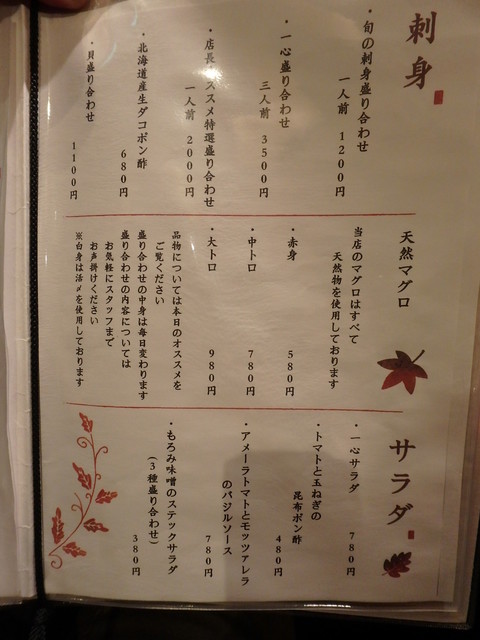 刺身
・旬の刺身盛り合わせ
一人前 1200円
・一心盛り合わせ
三人前 3500円
・店長オススメ特選盛り合わせ
一人前 2000円
・北海道産生ダコポン酢
680円
・貝盛り合わせ
1100円
天然マグロ
当店のマグロはすべて
天然物を使用しております
・赤身 580円
・中トロ 780円
・大トロ 980円
品物については本日のオススメを
ご覧ください
盛り合わせの中身は毎日変わります
盛り合わせの内容については
お気軽にスタッフまで
お声掛けください
※白身は活〆を使用しております
サラダ
・一心サラダ 780円
・トマトと玉ねぎの
昆布ポン酢 480円
・アメーラトマトとモッツァレラ
のバジルソース 780円
・もろみ味噌のステックサラダ
（3種盛り合わせ） 380円